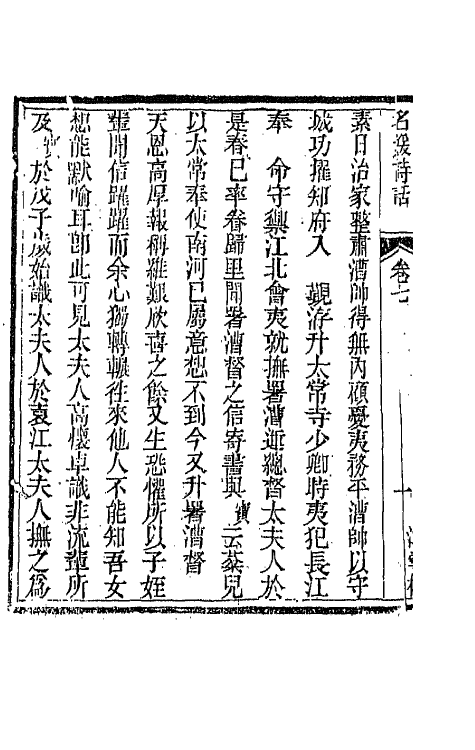 名媛詩話 卷七
素日治家整肅漕帥得無內顧憂夷務平漕帥以守
城功擢知府入 覲游升太常寺少卿時夷犯長江
奉 命守禦江北會夷就撫署漕運總督太夫人於
是春已率眷歸里聞署漕督之信寄書與寶云葵兒
以太常奉使南河已屬意想不到今又升署漕督
天恩高厚報稱維艱欣喜之餘又生恐懼所以子姪
輩聞信躍躍而余心獨轉輾徃來他人不能知吾女
想能默喻耳卽此可見太夫人高懷卓識非流輩所
及寶於戊子歲始識太夫人於袁江太夫人撫之爲